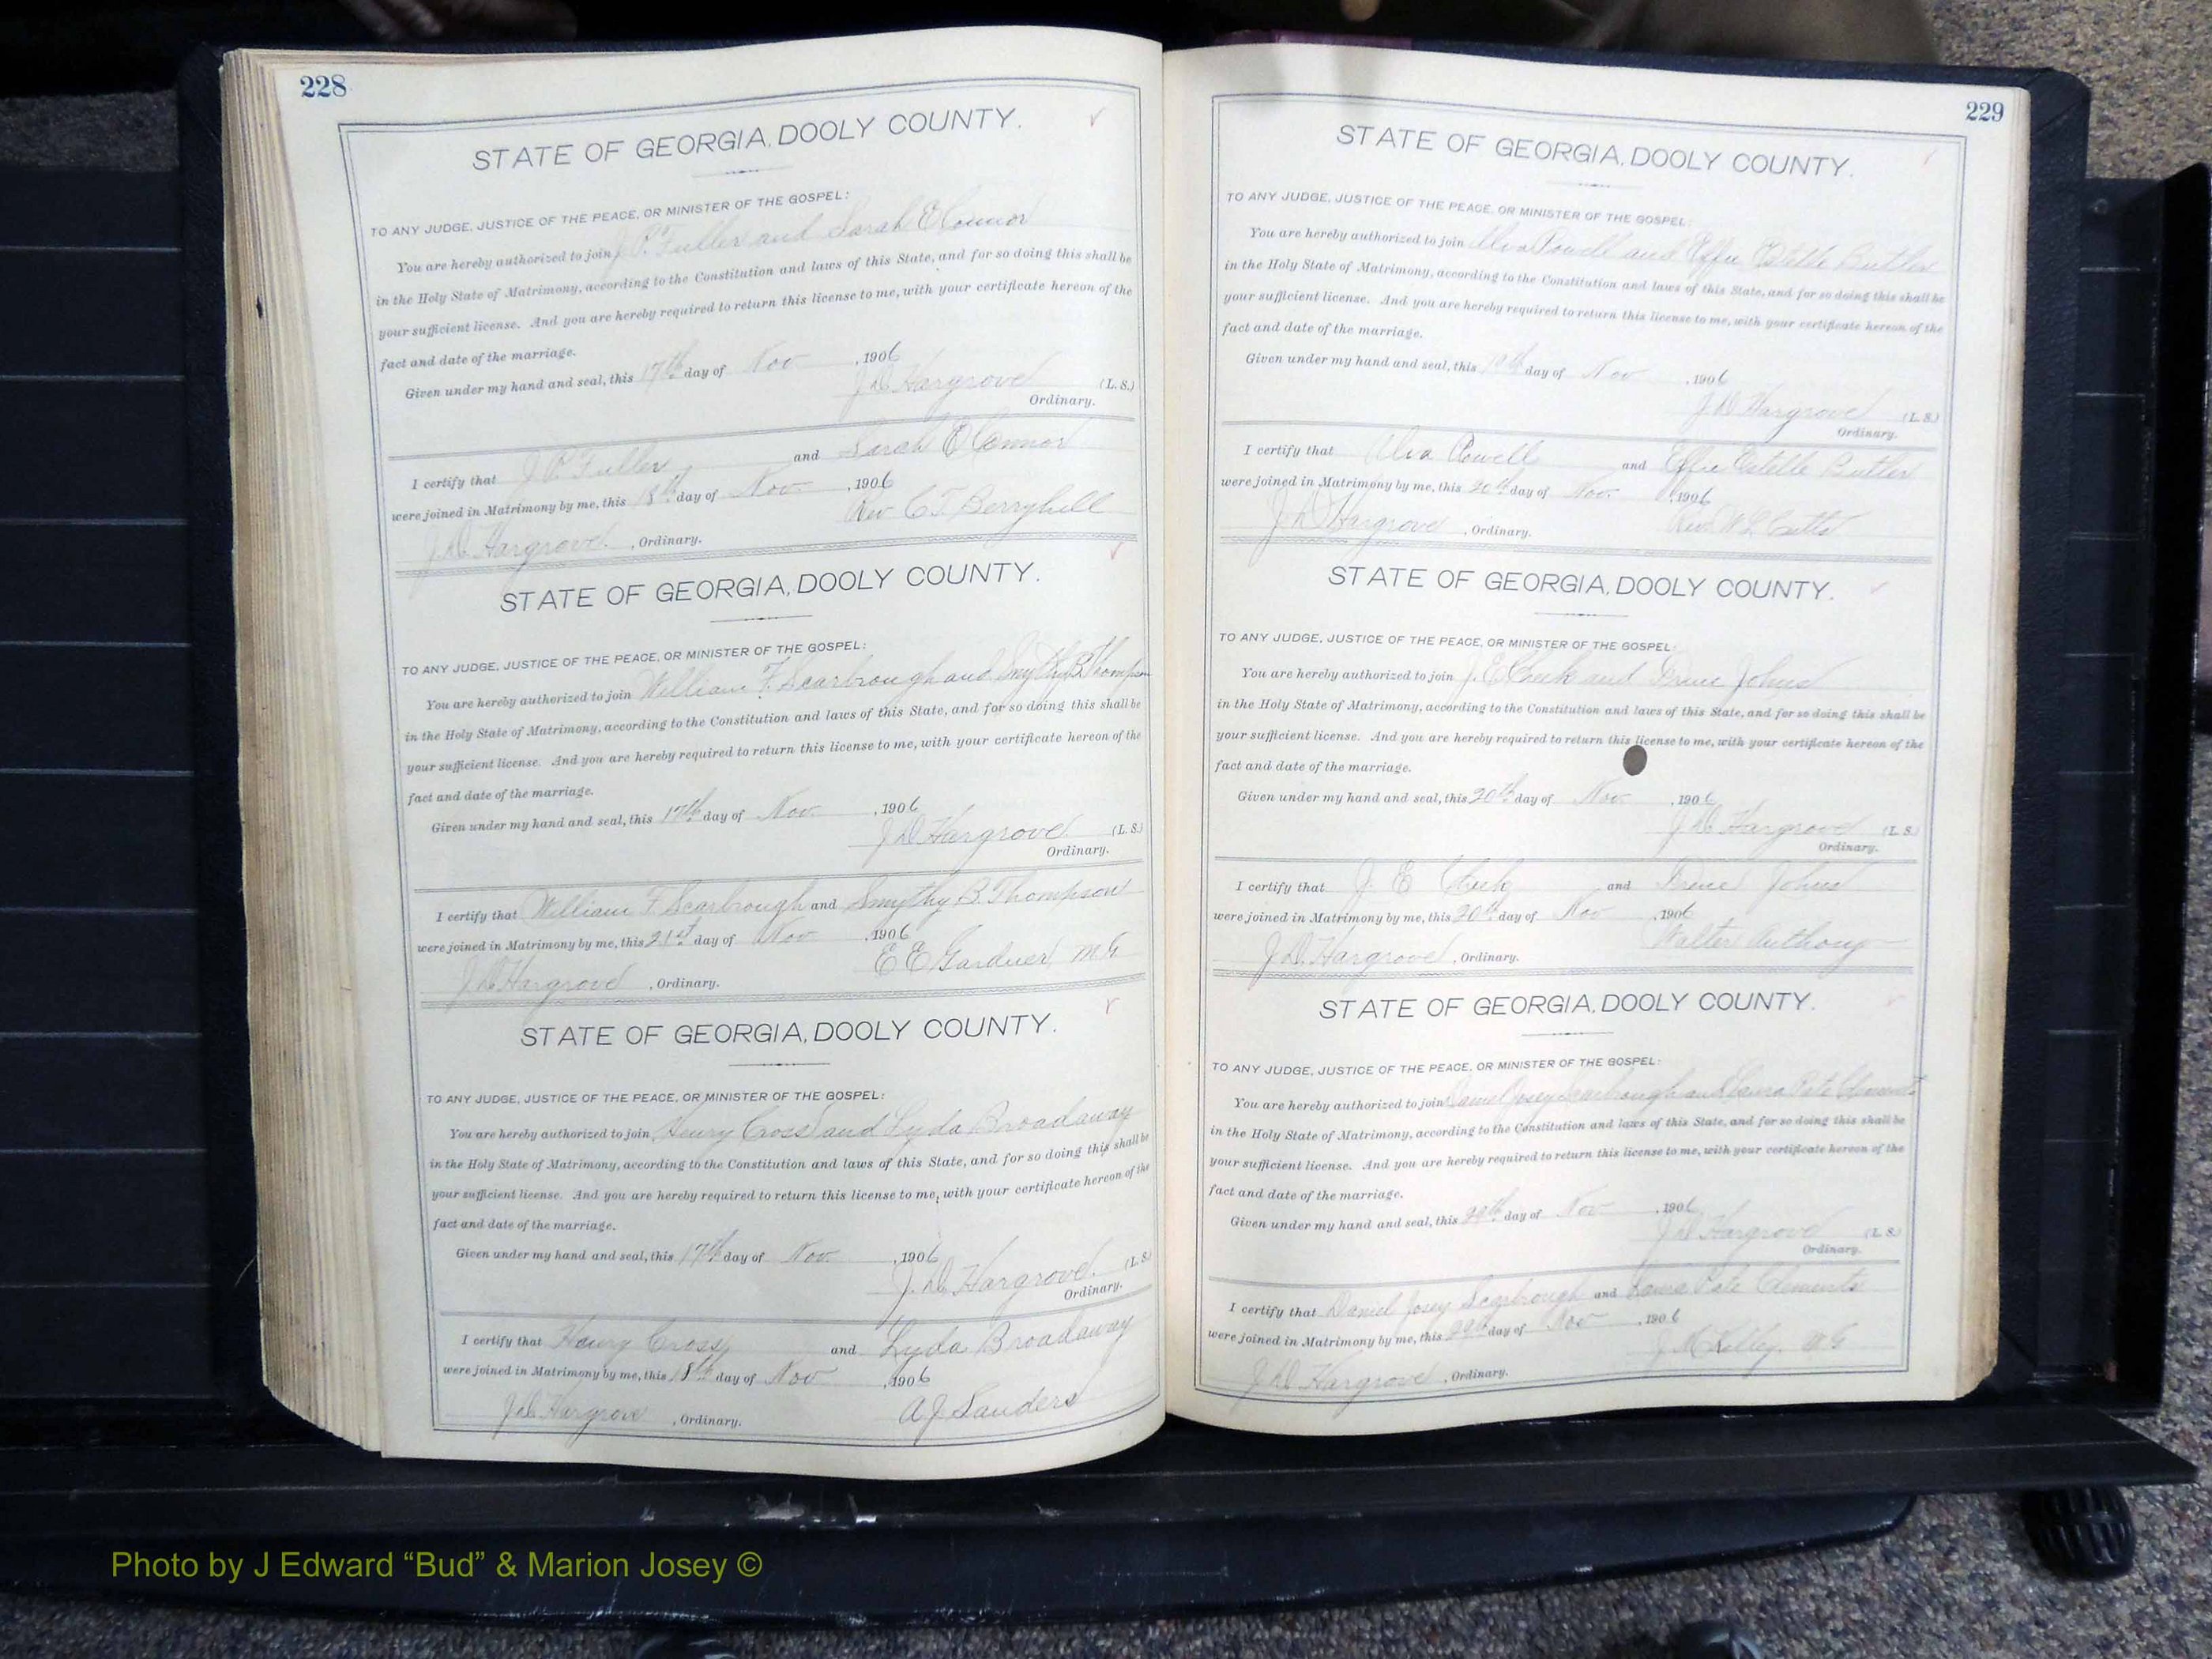 228
STATE OF GEORGIA, DOOLY COUNTY.
TO ANY JUDGE, JUSTICE OF THE PEACE, OR MINISTER OF THE GOSPEL:
You are hereby authorized to join J. P. Fuller and Sarah E Connor
in the Holy State of Matrimony, according to the Constitution and laws of this State, and for so doing this shall be
your sufficient license. And you are hereby required to return this license to me, with your certificate hereon of the
fact and date of the marriage.
Given under my hand and seal, this 17th day of Nov , 1906
J. D. Hargrove (L. S.)
Ordinary.
I certify that J. P. Fuller and Sarah E Connor
were joined in Matrimony by me, this 18th day of Nov. , 1906
Rev C T Berryhill
J. D. Hargrove , Ordinary.
STATE OF GEORGIA, DOOLY COUNTY.
TO ANY JUDGE, JUSTICE OF THE PEACE, OR MINISTER OF THE GOSPEL:
You are hereby authorized to join William F. Scarbrough and Smythy B. Thompson
in the Holy State of Matrimony, according to the Constitution and laws of this State, and for so doing this shall be
your sufficient license. And you are hereby required to return this license to me, with your certificate hereon of the
fact and date of the marriage.
Given under my hand and seal, this 17th day of Nov. , 1906
J D Hargrove (L. S.)
Ordinary.
I certify that William F. Scarbrough and Smythy B. Thompson
were joined in Matrimony by me, this 21st day of Nov , 1906
E E Gardner M G
J D Hargrove , Ordinary.
STATE OF GEORGIA, DOOLY COUNTY.
TO ANY JUDGE, JUSTICE OF THE PEACE, OR MINISTER OF THE GOSPEL:
You are hereby authorized to join Henry Cross and Lyda Broadaway
in the Holy State of Matrimony, according to the Constitution and laws of this State, and for so doing this shall be
your sufficient license. And you are hereby required to return this license to me, with your certificate hereon of the
fact and date of the marriage.
Given under my hand and seal, this 17th day of Nov. , 1906
J. D. Hargrove. (L. S.)
Ordinary.
I certify that Henry Cross and Lyda Broadaway
were joined in Matrimony by me, this 18th day of Nov , 1906
A J Sanders
J. D. Hargrove , Ordinary.
229
STATE OF GEORGIA, DOOLY COUNTY.
TO ANY JUDGE, JUSTICE OF THE PEACE, OR MINISTER OF THE GOSPEL:
You are hereby authorized to join Alva Powell and Effie Estelle Butler
in the Holy State of Matrimony, according to the Constitution and laws of this State, and for so doing this shall be
your sufficient license. And you are hereby required to return this license to me, with your certificate hereon of the
fact and date of the marriage.
Given under my hand and seal, this 19th day of Nov , 1906
J. D. Hargrove (L. S.)
Ordinary.
I certify that Alva Powell and Effie Estelle Butler
were joined in Matrimony by me, this 20th day of Nov. , 1906
Rev.
J. D. Hargrove , Ordinary.
STATE OF GEORGIA, DOOLY COUNTY.
TO ANY JUDGE, JUSTICE OF THE PEACE, OR MINISTER OF THE GOSPEL:
You are hereby authorized to join J. E. Cheek and Johns
in the Holy State of Matrimony, according to the Constitution and laws of this State, and for so doing this shall be
your sufficient license. And you are hereby required to return this license to me, with your certificate hereon of the
fact and date of the marriage.
Given under my hand and seal, this 20th day of Nov , 1906
J. D. Hargrove (L. S.)
Ordinary.
I certify that J. E Cheek and Johns
were joined in Matrimony by me, this 20th day of Nov , 1906
Walter Anthony
J. D. Hargrove , Ordinary.
STATE OF GEORGIA, DOOLY COUNTY.
TO ANY JUDGE, JUSTICE OF THE PEACE, OR MINISTER OF THE GOSPEL:
You are hereby authorized to join Daniel Josey Scarbrough and Laura Pate Clements
in the Holy State of Matrimony, according to the Constitution and laws of this State, and for so doing this shall be
your sufficient license. And you are hereby required to return this license to me, with your certificate hereon of the
fact and date of the marriage.
Given under my hand and seal, this day of Nov , 1906
J D Hargrove (L. S.)
Ordinary.
I certify that Daniel Josey Scarbrough and Laura Pate Clements
were joined in Matrimony by me, this day of Nov , 1906
J M Kelley M G
J. D. Hargrove , Ordinary.
Photo by J Edward “Bud” & Marion Josey ©